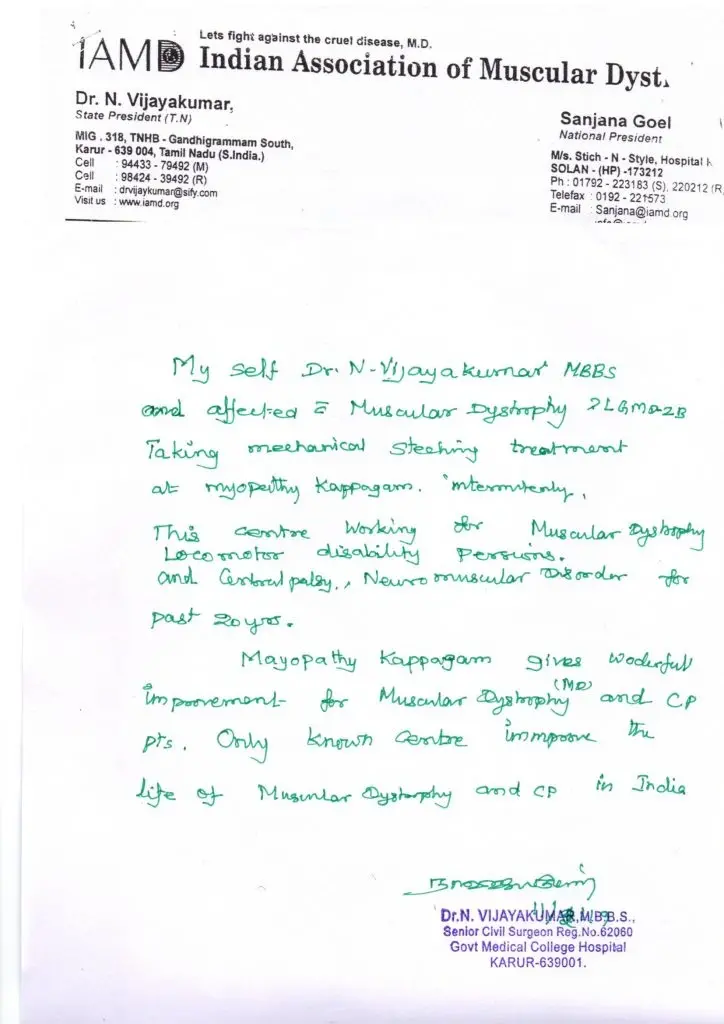 Lets fight against the cruel disease, M.D.
IAMD Indian Association of Muscular Dyst
Dr. N. Vijayakumar,
State President (T.N)
MIG . 318, TNHB - Gandhigrammam South,
Karur - 639 004, Tamil Nadu (S.India.)
Cell : 94433 - 79492 (M)
Cell : 98424 - 39492 (R)
E-mail : drvijaykumar@sify.com
Visit us : www.iamd.org
Sanjana Goel
National President
M/s. Stich - N - Style, Hospital
SOLAN - (HP) -173212
Ph : 01792 - 223183 (S), 220212 (R
Telefax : 0192 - 221573
E-mail : Sanjana@iamd.org
My self Dr. N-Vijayakumar MBBS
and affected c̄ Muscular Dystrophy LGMD-2B
Taking mechanical steching treatment
at myopeithy Kappagam. intermitenly,
This centre Working for Muscular Dystrophy
Locomotor disability Persions.
and Cerebral palsy., Neuromuscular Disorder for
past 20 yrs.
Mayopathy Kappagam gives woderful
improvement for Muscular Dystrophy (MD) and CP
pts. Only known centre immprove the
life of Muscular Dystorphy and CP in India
Dr.N. VIJAYAKUMAR,M.B.B.S.,
Senior Civil Surgeon Reg.No.62060
Govt Medical College Hospital
KARUR-639001.